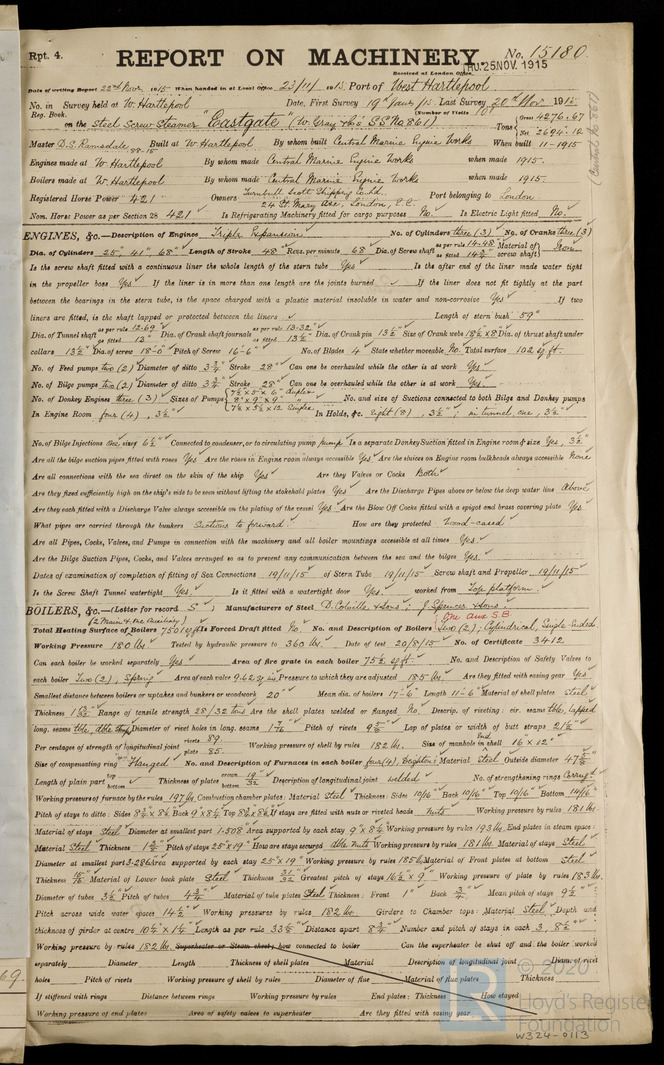 Rpt. 4.
REPORT ON MACHINERY.
No. 15180
Received at London Office
THU. 25 NOV. 1915
Date of writing Report 22nd Nov. 1915 When handed in at Local Office 23/11/1915 Port of West Hartlepool
No. in Survey held at W. Hartlepool Date, First Survey 19th Last Survey 20th Nov 1915
Reg. Book. (Number of Visits
on the Steel Screw Steamer "Eastgate" (W. Gray & Co's S.S. No 861) Tons Gross 4276.67 Net 2694.12
Master D.S. Ramsdale Built at W. Hartlepool By whom built Central Marine Engine Works When built 11-1915
Engines made at W. Hartlepool By whom made Central Marine Engine Works when made 1915.
Boilers made at W. Hartlepool By whom made Central Marine Engine Works when made 1915.
Registered Horse Power 421 Owners Turnbull Scott Shipping Co. Ld. 24 St. Mary Axe, London, E.C. Port belonging to London
Nom. Horse Power as per Section 28 421 Is Refrigerating Machinery fitted for cargo purposes No. Is Electric Light fitted No.
ENGINES, &c.—Description of Engines Triple Expansion No. of Cylinders three (3) No. of Cranks three (3)
Dia. of Cylinders 25" 41" 68" Length of Stroke 48" Revs. per minute 68 Dia. of Screw shaft as per rule 14.48 as fitted 14¾ Material of screw shaft Iron
Is the screw shaft fitted with a continuous liner the whole length of the stern tube Yes Is the after end of the liner made water tight
in the propeller boss Yes If the liner is in more than one length are the joints burned If the liner does not fit tightly at the part
between the bearings in the stern tube, is the space charged with a plastic material insoluble in water and non-corrosive Yes If two
liners are fitted, is the shaft lapped or protected between the liners Length of stern bush 59"
Dia. of Tunnel shaft as per rule 12.69 as fitted 13" Dia. of Crank shaft journals as per rule 13.32 as fitted 13½" Dia. of Crank pin 13½" Size of Crank webs 18½"x8" Dia. of thrust shaft under
collars 13½" Dia. of screw 18-0" Pitch of Screw 16-6" No. of Blades 4 State whether moveable No. Total surface 102 sq ft.
No. of Feed pumps two (2) Diameter of ditto 3¾" Stroke 28" Can one be overhauled while the other is at work Yes.
No. of Bilge pumps two (2) Diameter of ditto 3¾" Stroke 28" Can one be overhauled while the other is at work Yes.
No. of Donkey Engines three (3) Sizes of Pumps 7½ x 5 x 6" duplex 8" x 9" x 9" " 7½ x 5½ x 12 Single No. and size of Suctions connected to both Bilge and Donkey pumps
In Engine Room four (4), 3½" In Holds, &c. eight (8), 3½"; in tunnel, one, 3½"
No. of Bilge Injections one sizes 6½" Connected to condenser, or to circulating pump pump Is a separate Donkey Suction fitted in Engine room & size Yes, 3½"
Are all the bilge suction pipes fitted with roses Yes Are the roses in Engine room always accessible Yes Are the sluices on Engine room bulkheads always accessible None
Are all connections with the sea direct on the skin of the ship Yes Are they Valves or Cocks Both
Are they fixed sufficiently high on the ship's side to be seen without lifting the stokehold plates Yes Are the Discharge Pipes above or below the deep water line Above
Are they each fitted with a Discharge Valve always accessible on the plating of the vessel Yes Are the Blow Off Cocks fitted with a spigot and brass covering plate Yes
What pipes are carried through the bunkers Suctions to forward How are they protected Wood-cased
Are all Pipes, Cocks, Valves, and Pumps in connection with the machinery and all boiler mountings accessible at all times Yes.
Are the Bilge Suction Pipes, Cocks, and Valves arranged so as to prevent any communication between the sea and the bilges Yes.
Dates of examination of completion of fitting of Sea Connections 19/11/15 of Stern Tube 19/11/15 Screw shaft and Propeller 19/11/15
Is the Screw Shaft Tunnel watertight Yes. Is it fitted with a watertight door Yes. worked from Top platform.
BOILERS, &c.—(Letter for record S) Manufacturers of Steel D. Colville & Sons; J. Spencer & Sons.
(2 Main & the Auxiliary) One Aux S.B.
Total Heating Surface of Boilers 7501 sq ft Is Forced Draft fitted No. No. and Description of Boilers two (2); Cylindrical, Single Ended
Working Pressure 180 lbs. Tested by hydraulic pressure to 360 lbs. Date of test 20/8/15 No. of Certificate 3412
Can each boiler be worked separately Yes Area of fire grate in each boiler 75½ sq ft. No. and Description of Safety Valves to
each boiler Two (2), Spring Area of each valve 9.62 sq ins Pressure to which they are adjusted 185 lbs. Are they fitted with easing gear Yes
Smallest distance between boilers or uptakes and bunkers or woodwork 20" Mean dia. of boilers 17-6" Length 11-6" Material of shell plates Steel
Thickness Range of tensile strength 28/32 tons Are the shell plates welded or flanged No. Descrip. of riveting: cir. seams tble. lapped
long. seams Diameter of rivet holes in long. seams 1 7/16 Pitch of rivets Lap of plates or width of butt straps 21½"
Per centages of strength of longitudinal joint rivets 89. plate 85. Working pressure of shell by rules 182 lbs. Size of manhole in shell End 16" x 12"
Size of compensating ring Flanged No. and Description of Furnaces in each boiler four (4), Deighton's Material Steel Outside diameter
Length of plain part top bottom Thickness of plates crown bottom 19/32 Description of longitudinal joint welded No. of strengthening rings Corrugtd
Working pressure of furnace by the rules 197 lbs. Combustion chamber plates: Material Steel Thickness: Sides 10/16" Back 10/16" Top 10/16" Bottom 14/16"
Pitch of stays to ditto: Sides 8½ x 8½ Back 9" x 8½" Top 8½ x 8½ If stays are fitted with nuts or riveted heads Nuts Working pressure by rules 181 lbs
Material of stays Steel Diameter at smallest part 1.508 Area supported by each stay 9" x 8½" Working pressure by rules 193 lbs. End plates in steam space:
Material Steel Thickness Pitch of stays 25" x 19" How are stays secured dble nuts Working pressure by rules 181 lbs. Material of stays Steel
Diameter at smallest part 3.286 Area supported by each stay 25" x 19" Working pressure by rules 185 lbs Material of Front plates at bottom Steel
Thickness 15/16 Material of Lower back plate Steel Thickness 31/32 Greatest pitch of stays 16½ x 9" Working pressure of plate by rules 183 lbs.
Diameter of tubes 3½ Pitch of tubes 4¾" Material of tube plates Steel Thickness: Front 1" Back ¾" Mean pitch of stays 9½"
Pitch across wide water spaces 14½" Working pressures by rules 182 lbs. Girders to Chamber tops: Material Steel Depth and
thickness of girder at centre 10½ x 1¼" Length as per rule 33½" Distance apart 8¾" Number and pitch of stays in each 3, 8½"
Working pressure by rules 182 lbs. Superheater or Steam chest; how connected to boiler Can the superheater be shut off and the boiler worked
separately Diameter Length Thickness of shell plates Material Description of longitudinal joint Diam. of rivet
holes Pitch of rivets Working pressure of shell by rules Diameter of flue Material of flue plates Thickness
If stiffened with rings Distance between rings Working pressure by rules End plates: Thickness How stayed
Working pressure of end plates Area of safety valves to superheater Are they fitted with easing gear
© 2020
Lloyd's Register
Foundation
W324-0113
69.